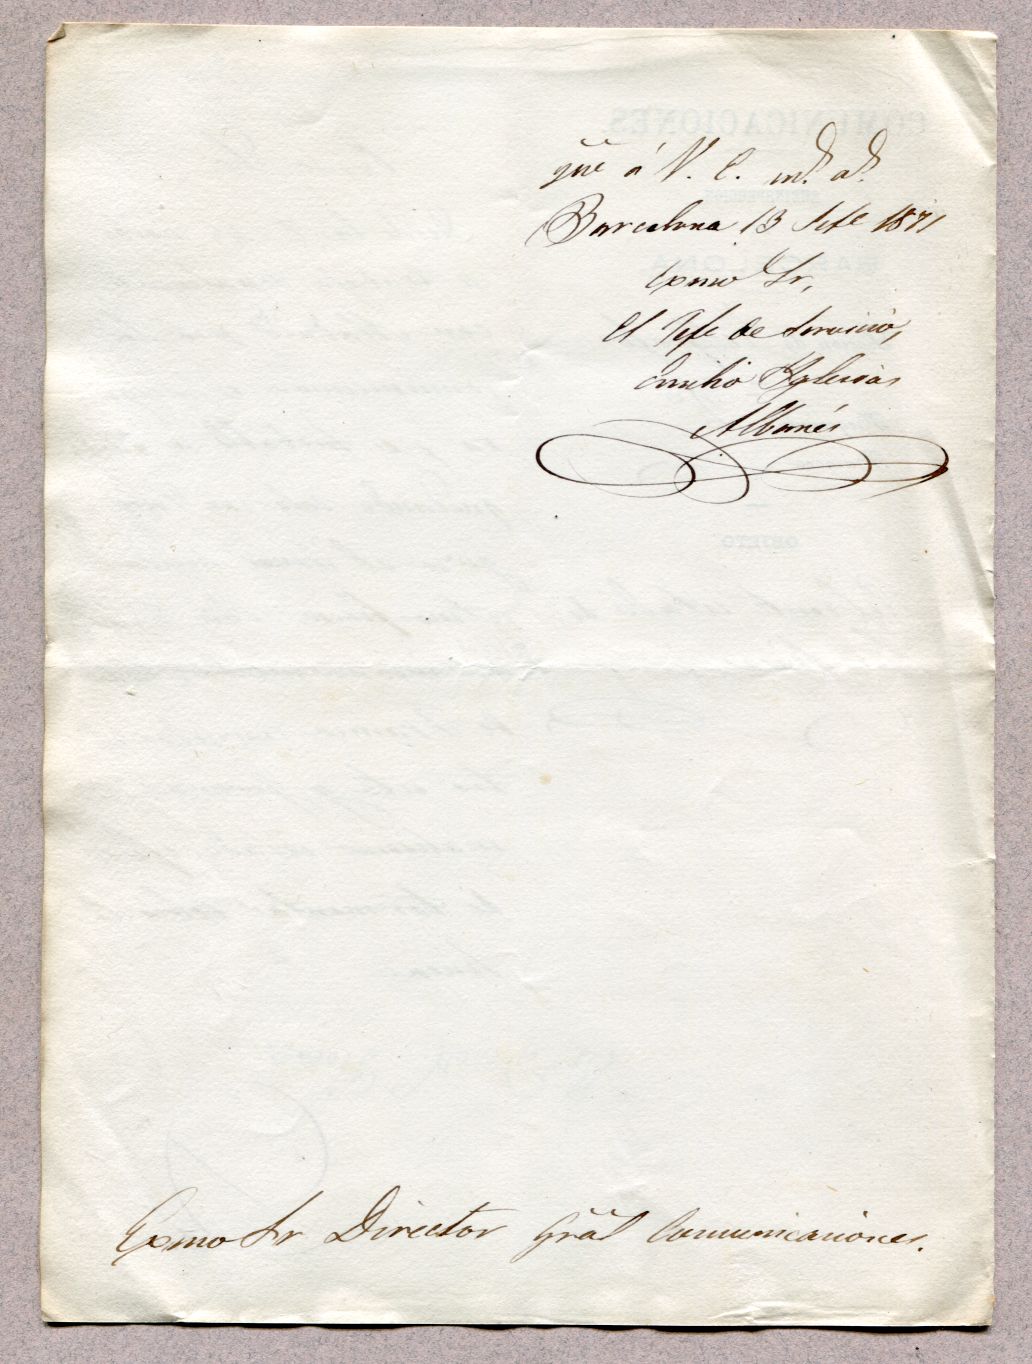 gūe á V. E. m.s a.s
Barcelona 13 Sete 1871
Exmo Sr,
El Jefe de Servicio,
Emilio Yglesias
Albanés
Exmo Sr Director Grāl Comunicaciones.